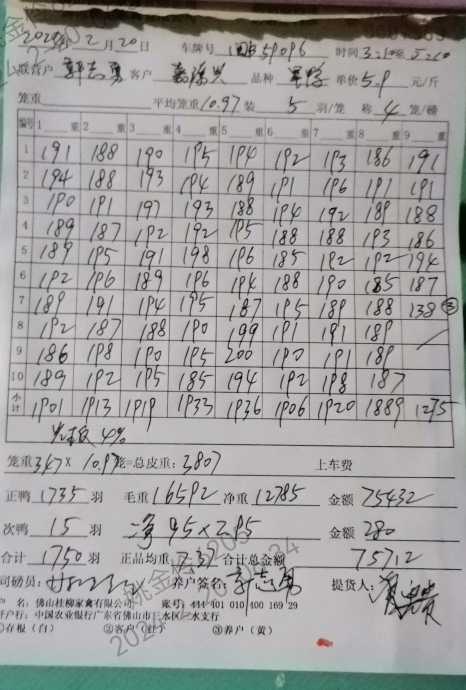 2024年2月20日 车牌号 59096 时间
联营户 郭志勇 客户 品种 单价5.9 元/斤
笼重 平均笼重10.97 装 5 羽/笼 称 4 笼/磅
编号 1 重 2 重 3 重 4 重 5 重 6 重 7 重 8 重 9 重
1 191 188 190 195 194 192 193 186 191
2 194 188 193 194 189 191 196 191 191
3 190 191 197 193 188 194 192 189 188
4 189 187 192 192 195 188 188 193 186
5 189 195 191 198 196 185 192 192 194
6 192 196 189 196 194 188 190 185 187
7 189 191 194 195 187 195 189 188 138 ③
8 192 187 188 190 199 191 191 189
9 186 198 190 195 200 190 191 189
10 189 192 195 185 194 192 198 187
小计 1901 1913 1919 1933 1936 1906 1920 1889 1275
4%
笼重347×10.97笼=总皮重:3807 上车费
正鸭 1735 羽 毛重16592 净重12785 金额 75432
次鸭 15 羽 95×2.95 金额 280
合计 1750 羽 正品均重7.37 合计总金额 75712
司磅员: 养户签名: 郭志勇 提货人:
户 名: 佛山桂柳家禽有限公司 账号: 444 401 010 400 169 29
开户行: 中国农业银行广东省佛山市三水区三水支行
①存根(白) ②客户(红) ③养户(黄)